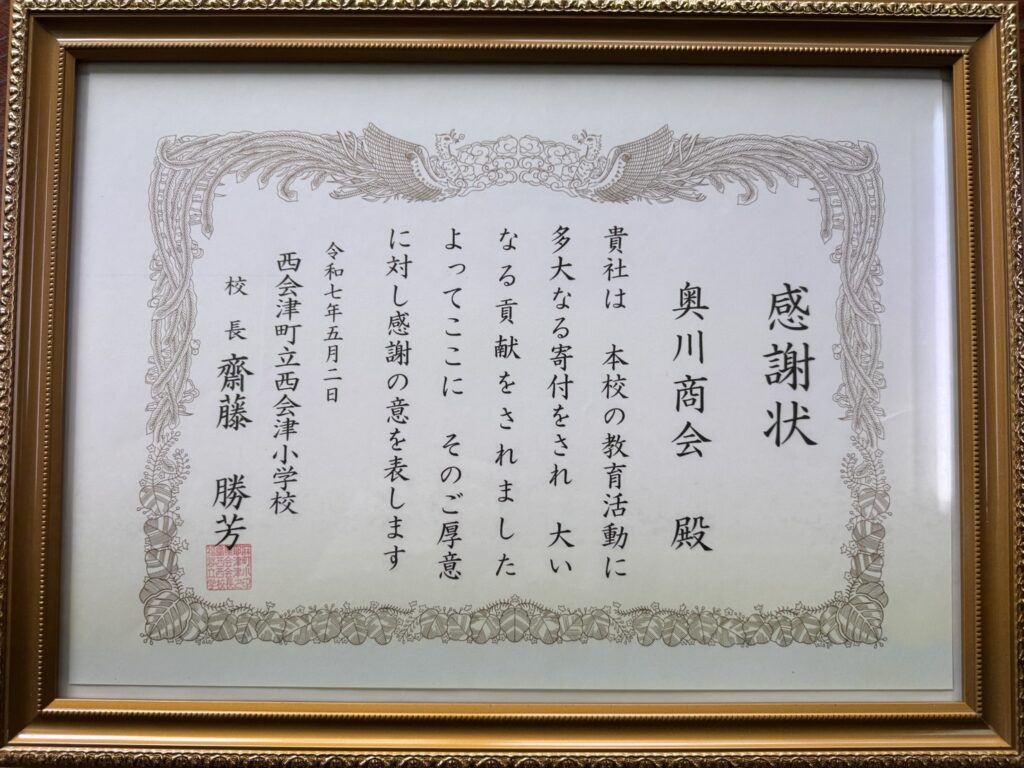 感謝状
奥川商会 殿
貴社は 本校の教育活動に
多大なる寄付をされ 大い
なる貢献をされました
よってここに そのご厚意
に対し感謝の意を表します
令和七年五月二日
西会津町立西会津小学校
校長 齋藤 勝芳